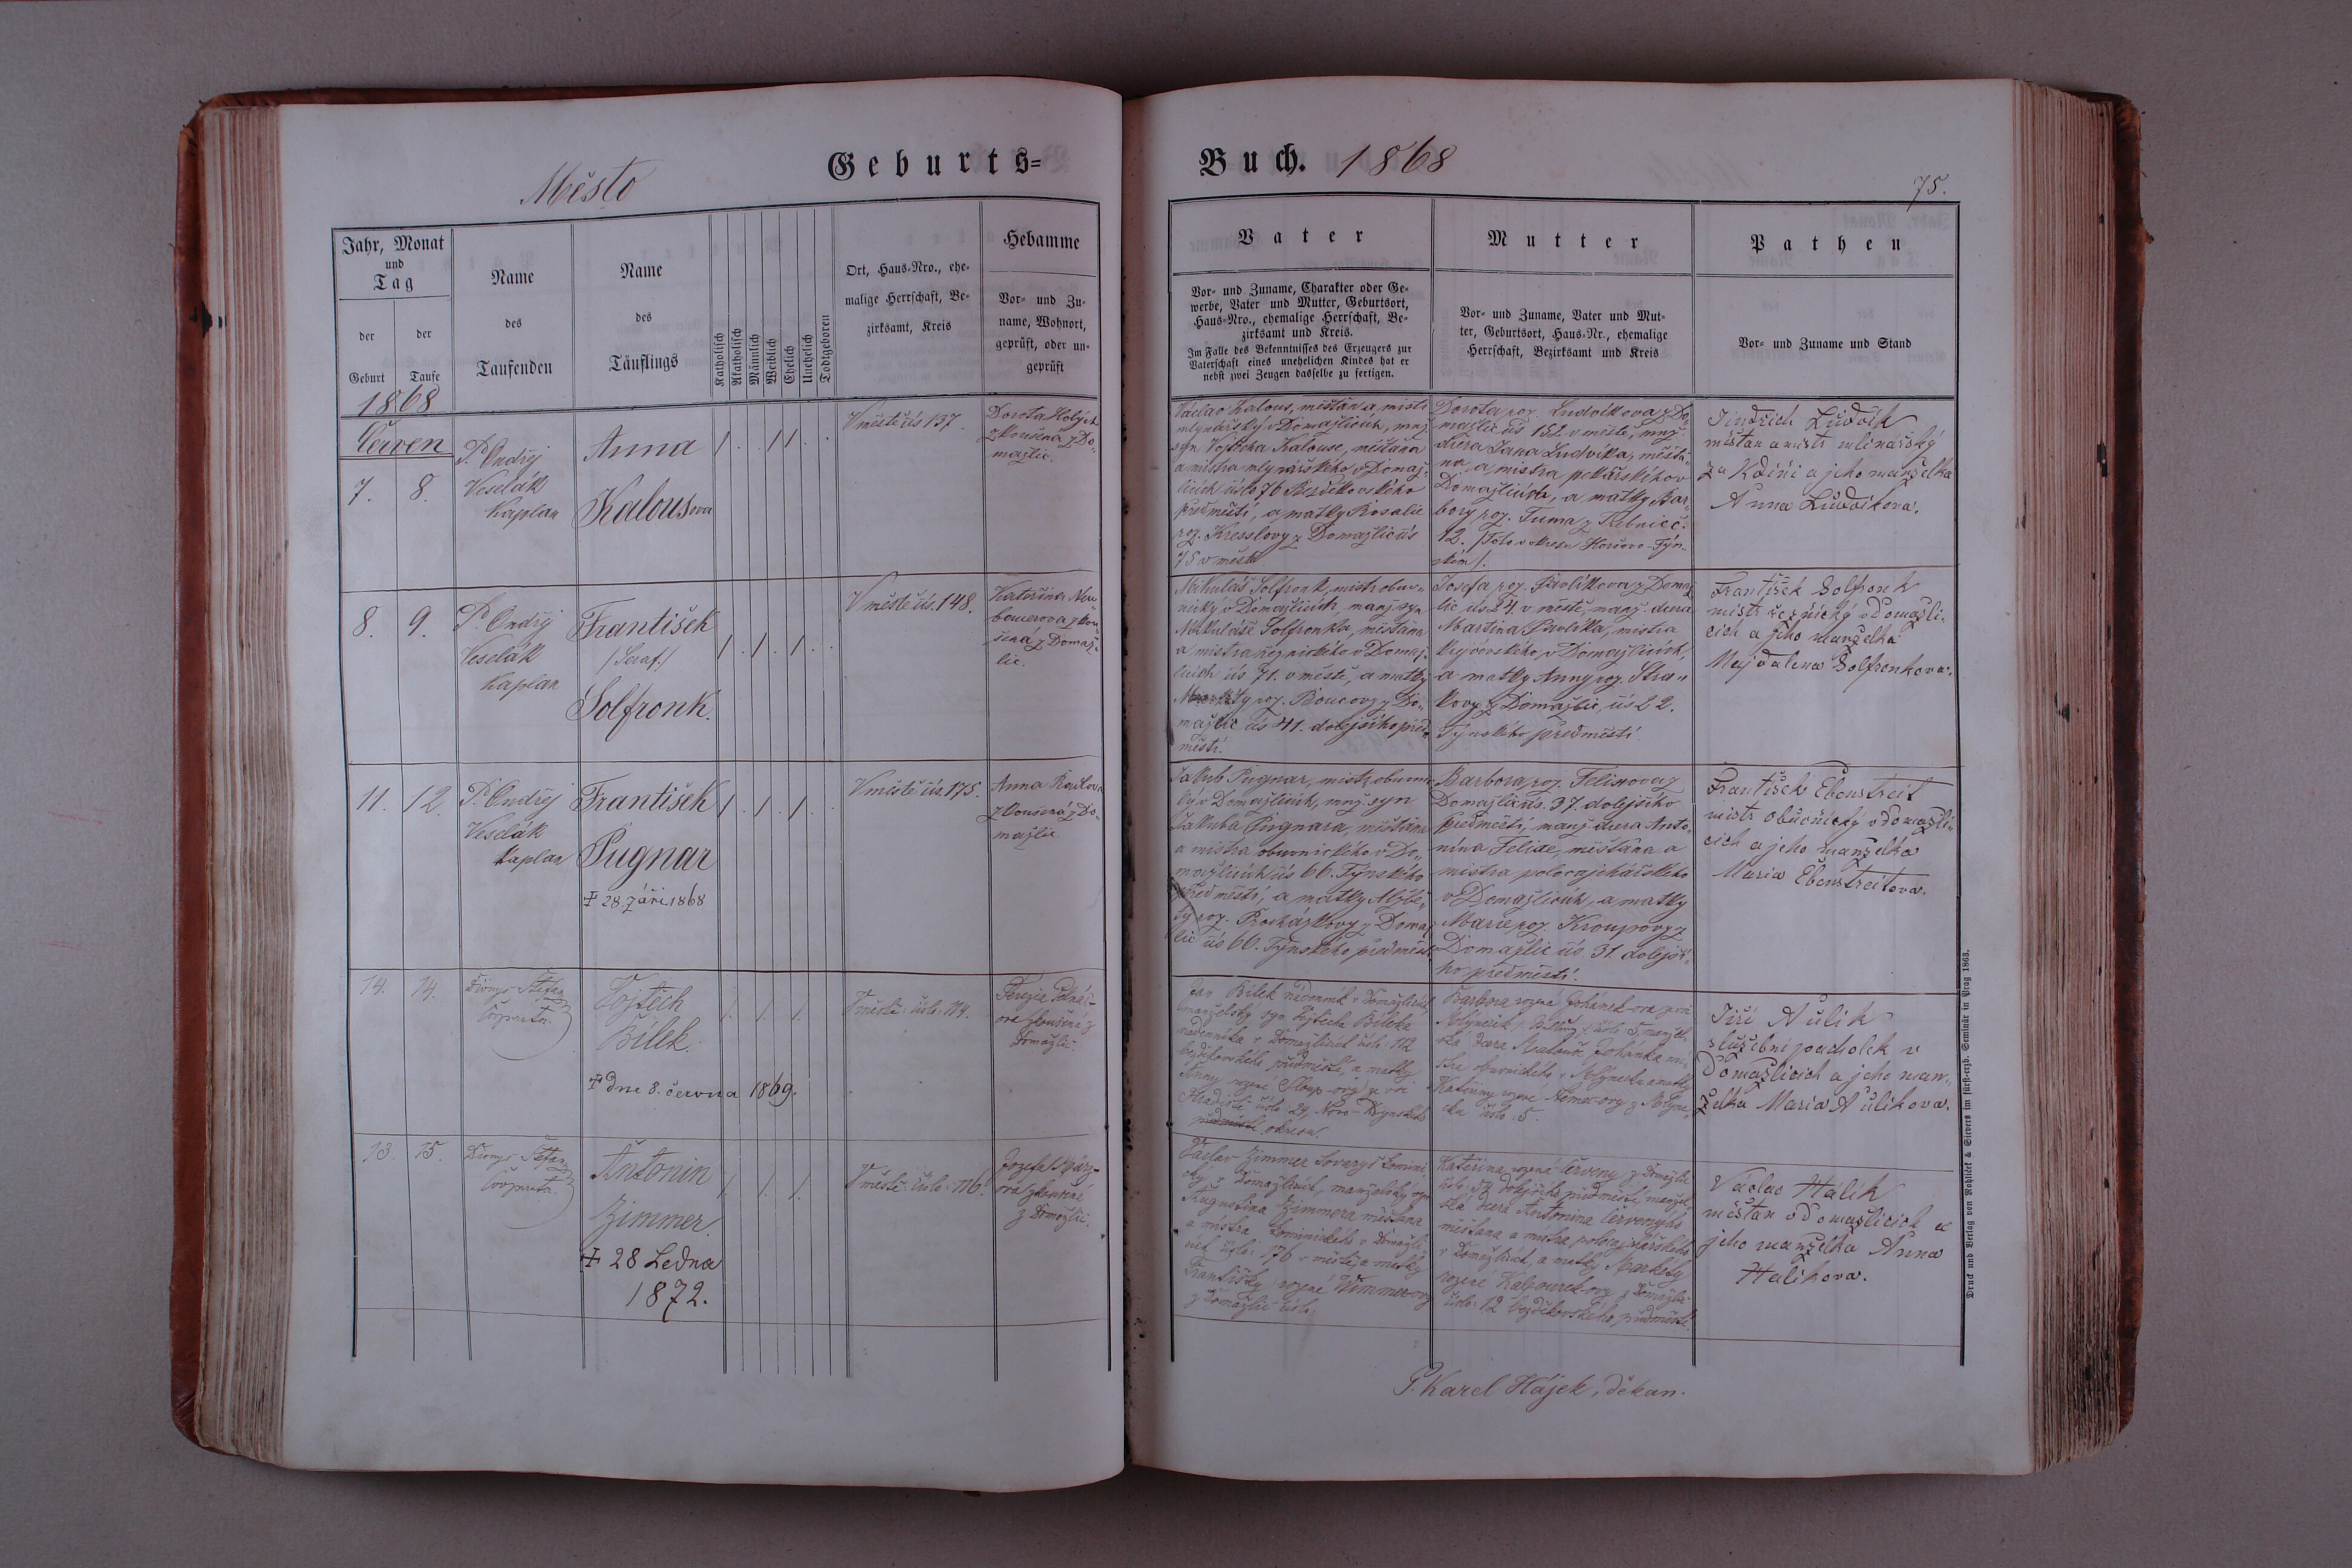 Město
Geburts=
Buch. 1868
75.
Jahr, Monat
und
Tag
der
Geburt
der
Taufe
Name
des
Taufenden
Name
des
Täuflings
Katholisch
Akatholisch
Männlich
Weiblich
Ehelich
Unehelich
Todtgeboren
Ort, Haus-Nro., ehe-
malige Herrschaft, Be-
zirksamt, Kreis
Hebamme
Vor- und Zu-
name, Wohnort,
geprüft, oder un-
geprüft
Vater
Vor- und Zuname, Charakter oder Ge-
werbe, Vater und Mutter, Geburtsort,
Haus-Nro., ehemalige Herrschaft, Be-
zirksamt und Kreis.
Im Falle des Bekenntnisses des Erzeugers zur
Vaterschaft eines unehelichen Kindes hat er
nebst zwei Zeugen dasselbe zu fertigen.
Mutter
Vor- und Zuname, Vater und Mut-
ter, Geburtsort, Haus-Nr., ehemalige
Herrschaft, Bezirksamt und Kreis
Pathen
Vor- und Zuname und Stand
1868
Červen
7.
8.
P. Ondřej
Veselák
Kaplan
Anna
Kalousova
V městě čís 137.
Dorota
zkoušená z Do-
mažlic.
Václav Kalous, měšťan a mistr
mlynářský v Domažlicích, manž.
syn Vojtěcha Kalouse, měšťana
a mistra mlynářského v Domaž-
licích číslo 76 Bezděkovského
předměstí, a matky Rosalie
roz. Kresslovy z Domažlic čís
75 v městě
Dorota roz. Ludvíkova z Do-
mažlic čís 152 v městě, manž.
dcera Jana Ludvíka, měšťa-
na a mistra pekařského v
Domažlicích, a matky Bar-
bory roz. Tuma z č.
12.
Jindřich Ludvík
měšťan a mistr mlinářský
za Kdini a jeho manželka
Anna Ludvíkova.
8.
9.
P. Ondřej
Veselák
Kaplan
František
/Seraf./
Solfronk.
V městě čís. 148.
Kateřina Neu-
bauerova zkou-
šena z Domaž-
lic.
Mikuláš Solfronk, mistr obuv-
nický v Domažlicích, manž. syn
Mikuláše Solfronka, měšťana
a mistra řeznického v Domaž-
licích čís 71. v městě, a matky
Markéty roz. Boucovy z Do-
mažlic čís 41. dolejšího před-
městí.
Josefa roz. Pavlíkova z Domaž-
lic čís 24 v městě, manž. dcera
Martina Pavlíka, mistra
krejčovského v Domažlicích,
a matky Anny roz. Stra-
kovy z Domažlic, čís 22.
Týnského předměstí.
František Solfronk
mistr řeznický v Domažli-
cich a jeho manželka
Majdalena Solfronkova.
11.
12.
P. Ondřej
Veselák
kaplan
František
Pugnar
+ 28. září 1868
V městě čís. 175.
Anna
zkoušená z Do-
mažlic.
Jakub Pugnar, mistr obuvnic-
ký v Domažlicích, manž. syn
Jakuba Pugnara, měšťana
a mistra obuvnického v Do-
mažlicích čís 66. Týnského
předměstí, a matky Alžbě-
ty roz. Procházkovy z Domaž-
lic čís 60. Týnského předměstí
Barbora, roz. Felixova z
Domažlic čís. 37. dolejšího
předměstí, manž. dcera Anto-
nína Felixe, měšťana a
mistra
v Domažlicích, a matky
Marie roz. Kroupovy z
Domažlic čís 31. dolejší-
ho předměstí.
František Ebenstreit
mistr obuvnický v domažli-
cich a jeho manželka
Maria Ebenstreitova.
14.
14.
Štefan
Vojtěch
Bílek.
+ dne 8. června 1869.
V městě: čislo: 114.
Terezie
zkoušená z
Domažlic.
Jan Bílek nádeník v Domažlicích,
manželský syn Vojtěcha Bílka
nádeníka v Domažlicích číslo: 112
bezděkovského předměstí, a matky
Anny rozené
Hradiště číslo: 29,
okresu.
Barbora rozená Johánek-ova
manžel-
ská dcera Matouše Johánka mi-
stra
Kateřiny rozené Němec-ovy z
číslo: 5.
Jiří Aulik
služební pacholek v
Domažlicich a jeho man-
želka Maria Aulikova.
13.
15.
Štefan
Antonin
Zimmer.
+ 28 Ledna
1872.
V městě: čislo: 116.
Jozefa
zkoušené
z Domažlic.
Václav Zimmer tovaryš komini-
cký v Domažlicích, manželský syn
Augustina Zimmera měšťana
a mistra kominického v Domažli-
cích číslo: 176 v městě, a matky
Františky rozené
z Domažlic číslo:
Kateřina rozená Červený z Domažlic
číslo: dolejšího předměstí, manžel-
ská dcera Antonína Červeného
měšťana a mistra
v Domažlicích, a matky Markety
rozené z Domažlic
číslo: 12 bezděkovského předměstí.
Vaclav Halik
měštan v domažlicich a
jeho manželka Anna
Halikova.
P. Karel Hájek, děkan.
Druck und Verlag von Rohliček & Sievers im fürst-erzb. Seminär in Prag 1863.